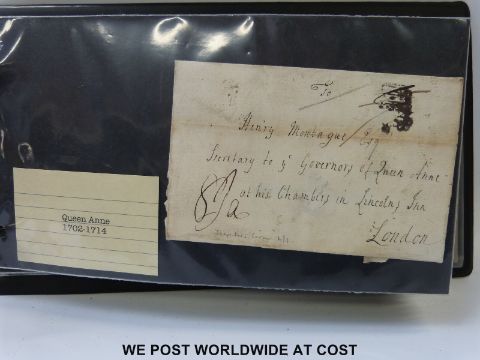 To
Henry Montague Esq
Secretary to yͤ Governors of Queen Anne
at his Chambers in Lincolns Inn
London
Queen Anne
1702-1714
WE POST WORLDWIDE AT COST